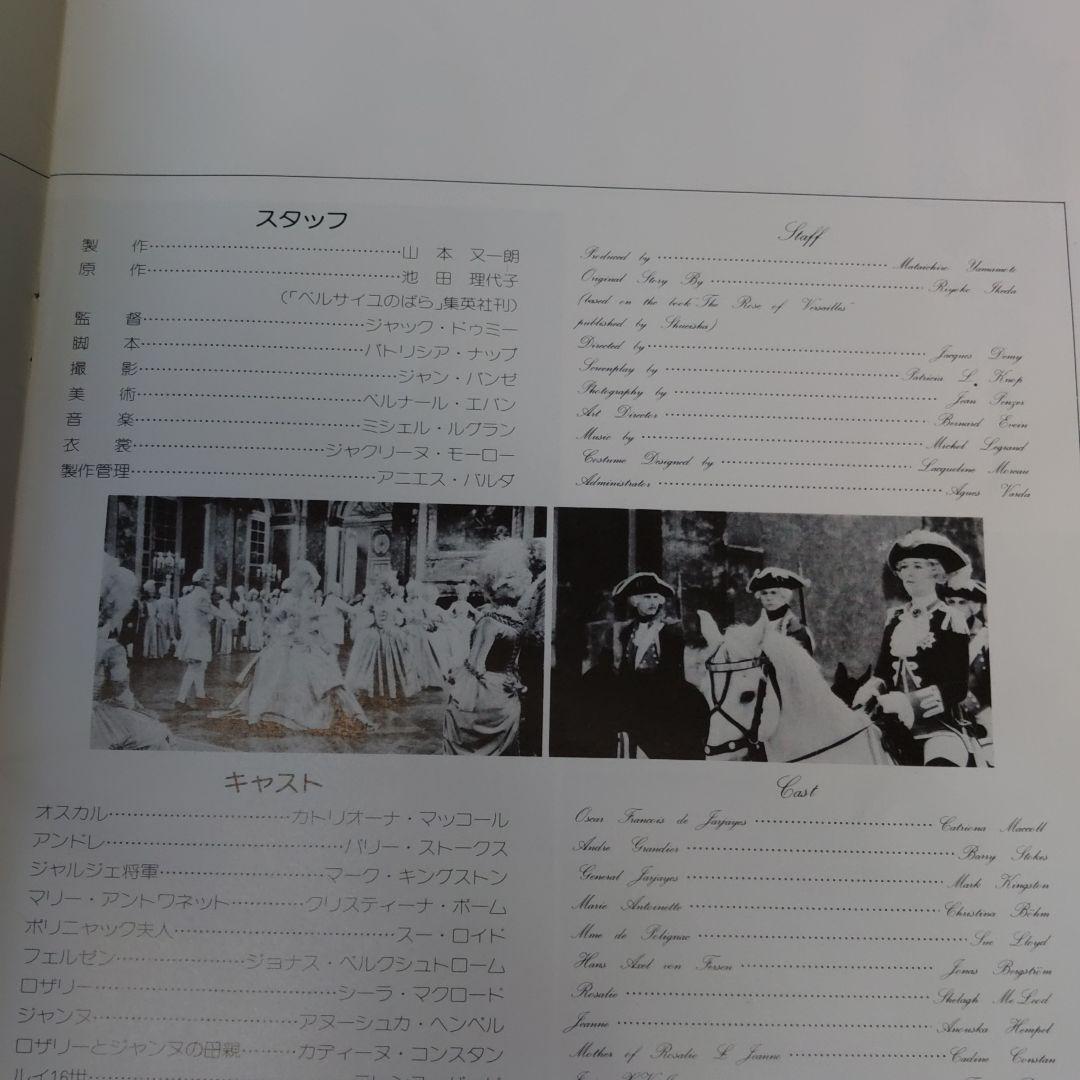 スタッフ
製 作……山 本 又一朗
原 作……池 田 理代子
(「ベルサイユのばら」集英社刊)
監 督……ジャック・ドゥミー
脚 本……パトリシア・ナップ
撮 影……ジャン・パンゼ
美 術……ベルナール・エバン
音 楽……ミシェル・ルグラン
衣 裳……ジャクリーヌ・モーロー
製作管理……アニエス・バルダ
Staff
Produced by……Mataichiro Yamamoto
Original Story By……Riyoko Ikeda
(based on the book "The Rose of Versailles"
published by Shueisha)
Directed by……Jacques Demy
Screenplay by……Patricia L. Knop
Photography by……Jean Penzer
Art Director……Bernard Evein
Music by……Michel Legrand
Costume Designed by……Jacqueline Moreau
Administrator……Agnes Varda
キャスト
オスカル……カトリオーナ・マッコール
アンドレ……バリー・ストークス
ジャルジェ将軍……マーク・キングストン
マリー・アントワネット……クリスティーナ・ボーム
ポリニャック夫人……スー・ロイド
フェルゼン……ジョナス・ベルクシュトローム
ロザリー……シーラ・マクロード
ジャンヌ……アヌーシュカ・ヘンペル
ロザリーとジャンヌの母親……カディーヌ・コンスタン
ルイ16世……
Cast
Oscar Francois de Jarjayes……Catriona Maccoll
Andre Grandier……Barry Stokes
General Jarjayes……Mark Kingston
Marie Antoinette……Christina Böhm
Mme de Polignac……Sue Lloyd
Hans Axel von Fersen……Jonas Bergström
Rosalie……Shelagh McLeod
Jeanne……Anouska Hempel
Mother of Rosalie & Jeanne……Cadine Constan